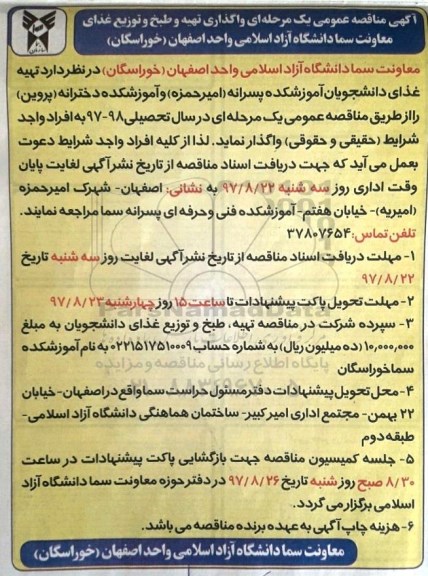 آگهی مناقصه عمومی یک مرحله‌ای واگذاری تهیه و طبخ و توزیع غذای
معاونت سما دانشگاه آزاد اسلامی واحد اصفهان (خوراسگان)
معاونت سما دانشگاه آزاد اسلامی واحد اصفهان (خوراسگان) در نظر دارد تهیه
غذای دانشجویان آموزشکده پسرانه (امیرحمزه) و آموزشکده دخترانه (پروین)
را از طریق مناقصه عمومی یک مرحله‌ای در سال تحصیلی ۹۸-۹۷ به افراد واجد
شرایط (حقیقی و حقوقی) واگذار نماید. لذا از کلیه افراد واجد شرایط دعوت
بعمل می آید که جهت دریافت اسناد مناقصه از تاریخ نشر آگهی لغایت پایان
وقت اداری روز سه شنبه ۹۷/۸/۲۲ به نشانی: اصفهان- شهرک امیرحمزه
(امیریه)- خیابان هفتم- آموزشکده فنی و حرفه ای پسرانه سما مراجعه نمایند.
تلفن تماس: ۳۷۸۰۷۶۵۴
۱- مهلت دریافت اسناد مناقصه از تاریخ نشر آگهی لغایت روز سه شنبه تاریخ
۹۷/۸/۲۲
۲- مهلت تحویل پاکت پیشنهادات تا ساعت ۱۵ روز چهارشنبه ۹۷/۸/۲۳
۳- سپرده شرکت در مناقصه تهیه، طبخ و توزیع غذای دانشجویان به مبلغ
۱۰,۰۰۰,۰۰۰ (ده میلیون ریال) به شماره حساب ۰۲۲۱۵۱۷۵۱۰۰۰۹ به نام آموزشکده
سما خوراسگان
۴- محل تحویل پیشنهادات دفتر مسئول حراست سما واقع در اصفهان- خیابان
۲۲ بهمن- مجتمع اداری امیرکبیر- ساختمان هماهنگی دانشگاه آزاد اسلامی-
طبقه دوم
۵- جلسه کمیسیون مناقصه جهت بازگشایی پاکت پیشنهادات در ساعت
۸/۳۰ صبح روز شنبه تاریخ ۹۷/۸/۲۶ در دفتر حوزه معاونت سما دانشگاه آزاد
اسلامی برگزار می گردد.
۶- هزینه چاپ آگهی به عهده برنده مناقصه می باشد.
معاونت سما دانشگاه آزاد اسلامی واحد اصفهان (خوراسگان)